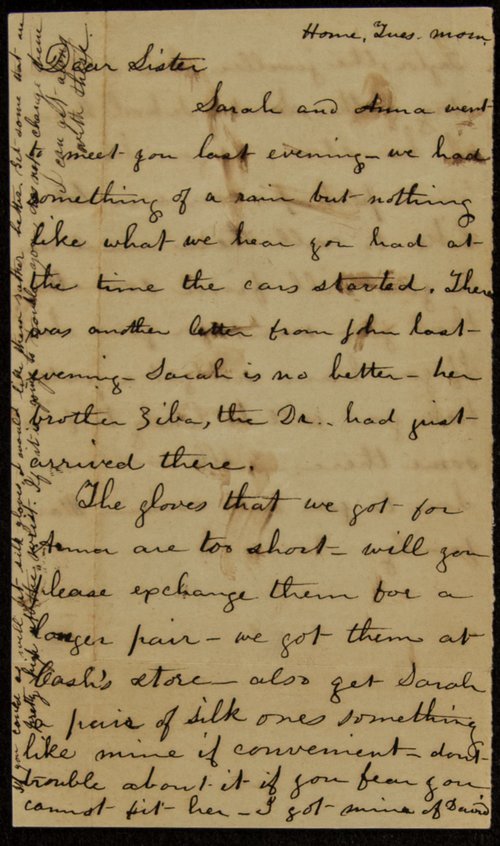 Home, Tues. morn.
Dear Sister
Sarah and Anna went
meet you last evening - we had
something of a rain but nothing
like what we hear you had at
the time the cars started. There
was another letter from John last
evening - Sarah is no better - her
brother Ziba, the Dr.. had just
arrived there.
The gloves that we got for
Anna are too short - will you
please exchange them for a
longer pair - we got them at
Cash's store - also get Sarah
a pair of silk ones something
like mine if convenient - dont
trouble about it if you fear you
cannot fit her - I got mine of David
If you could as well get silk gloves I would like them rather better. Get some that are
pretty high at the wrist. If it is going to trouble you do not change them
I can get along
with these.